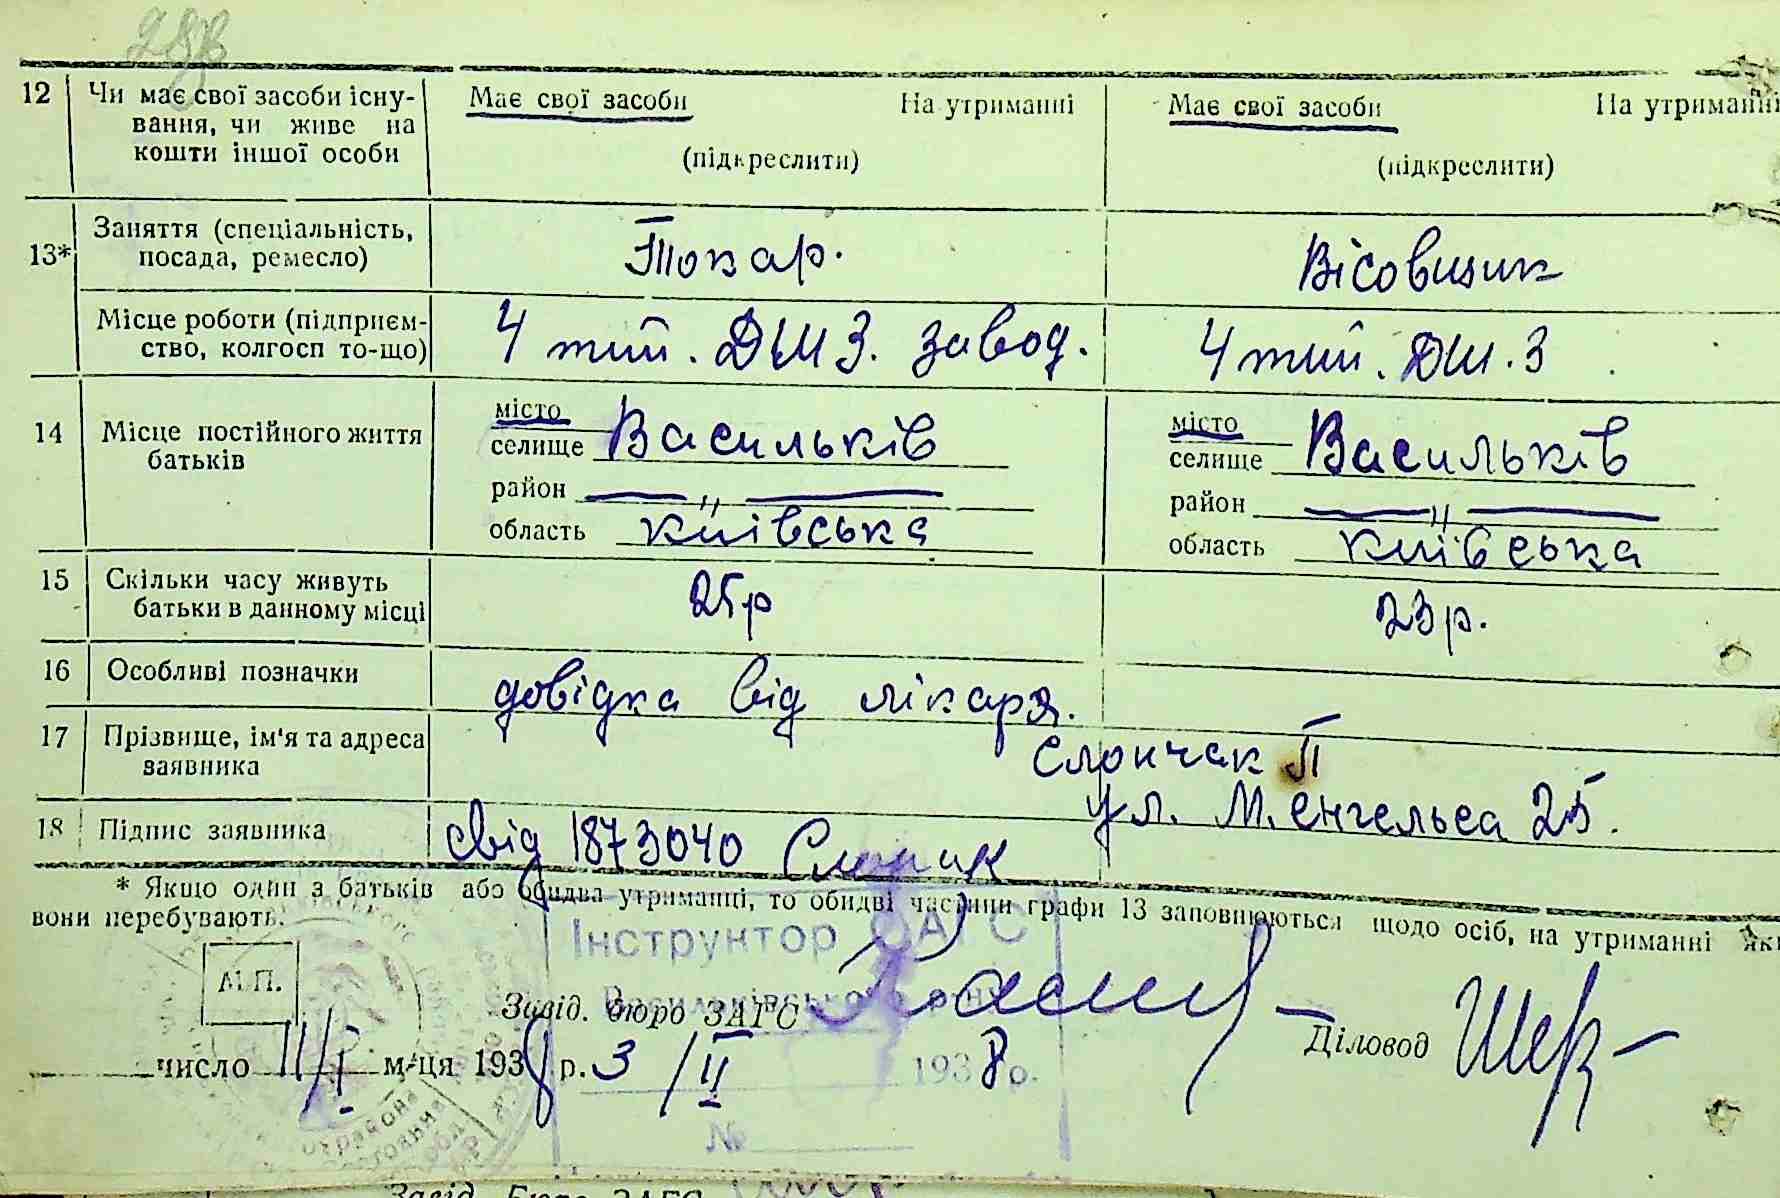 28
12 Чи має свої засоби існу-
вання, чи живе на
кошти іншої особи
Має свої засоби На утриманні
(підкреслити)
Має свої засоби На утриманні
(підкреслити)
13* Заняття (спеціальність,
посада, ремесло)
Токар.
Вісовщик
Місце роботи (підприєм-
ство, колгосп то-що)
4 тий. ДШЗ. завод.
4 тий. ДШ.З
14 Місце постійного життя
батьків
місто
селище Васильків
район — " —
область Київська
місто
селище Васильків
район — " —
область Київська
15 Скільки часу живуть
батьки в данному місці
25р
23р.
16 Особливі позначки
довідка від лікаря.
17 Прізвище, ім'я та адреса
заявника
Слончак П
ул. М. Енгельса 25.
18 Підпис заявника
свід 1873040
* Якщо один з батьків або обидва утриманні, то обидві частини графи 13 заповнюються щодо осіб, на утриманні яки
вони перебувають.
Інструктор ЗАГС
М.П.
Васильківського
Завід. бюро ЗАГС
Діловод
число 11/I м-ця 1938 р. 3/II 1938 р.
№
Завід. Бюро ЗАГС